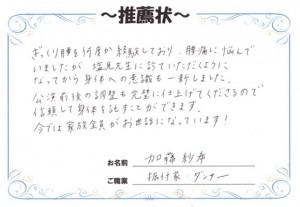 ～推薦状～
ぎっくり腰を何度か経験しており、腰痛に悩んで
いましたが 塩見先生に診ていただくように
なってから身体への意識も一新しました。
公演前後の調整も完璧に仕上げてくださるので
信頼して身体を託すことができます。
今では家族全員がお世話になっています!
お名前 加藤 紗希
ご職業 振付家・ダンサー